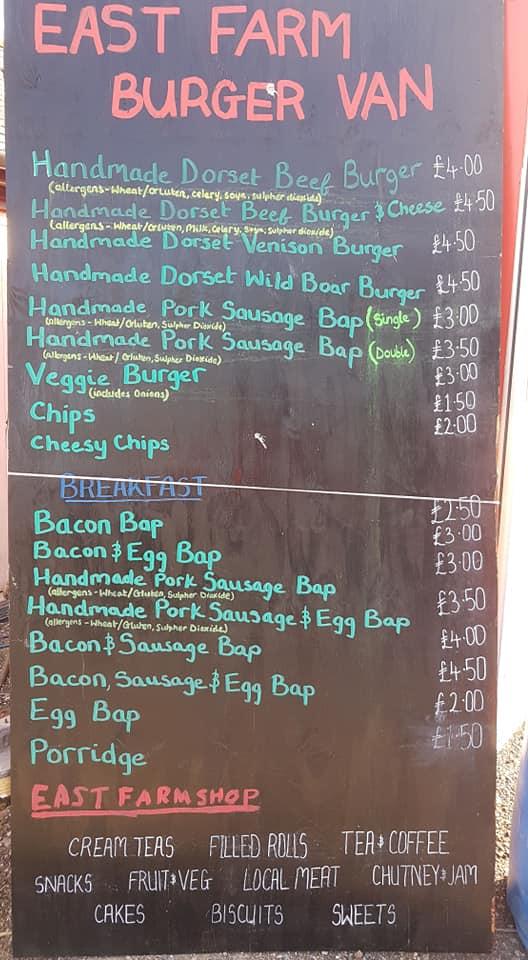 EAST FARM
BURGER VAN
Handmade Dorset Beef Burger £4.00
(allergens - Wheat/Gluten, celery, soya, sulpher dioxide)
Handmade Dorset Beef Burger & Cheese £4.50
(allergens - Wheat/Gluten, Milk, Celery, Soya, Sulpher dioxide)
Handmade Dorset Venison Burger £4.50
Handmade Dorset Wild Boar Burger £4.50
Handmade Pork Sausage Bap (Single) £3.00
(allergens - Wheat/Gluten, Sulpher Dioxide)
Handmade Pork Sausage Bap (Double) £3.50
(allergens - Wheat/Gluten, Sulpher Dioxide)
Veggie Burger £3.00
(includes Onions)
Chips £1.50
Cheesy Chips £2.00
BREAKFAST
Bacon Bap £2.50
Bacon & Egg Bap £3.00
Handmade Pork Sausage Bap £3.00
(allergens - Wheat/Gluten, Sulpher Dioxide)
Handmade Pork Sausage & Egg Bap £3.50
(allergens - Wheat/Gluten, Sulpher Dioxide)
Bacon & Sausage Bap £4.00
Bacon, Sausage & Egg Bap £4.50
Egg Bap £2.00
Porridge £1.50
EAST FARM SHOP
CREAM TEAS FILLED ROLLS TEA & COFFEE
SNACKS FRUIT & VEG LOCAL MEAT CHUTNEY & JAM
CAKES BISCUITS SWEETS